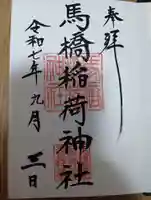 奉拝
馬橋稲荷神社
令和七年九月三日